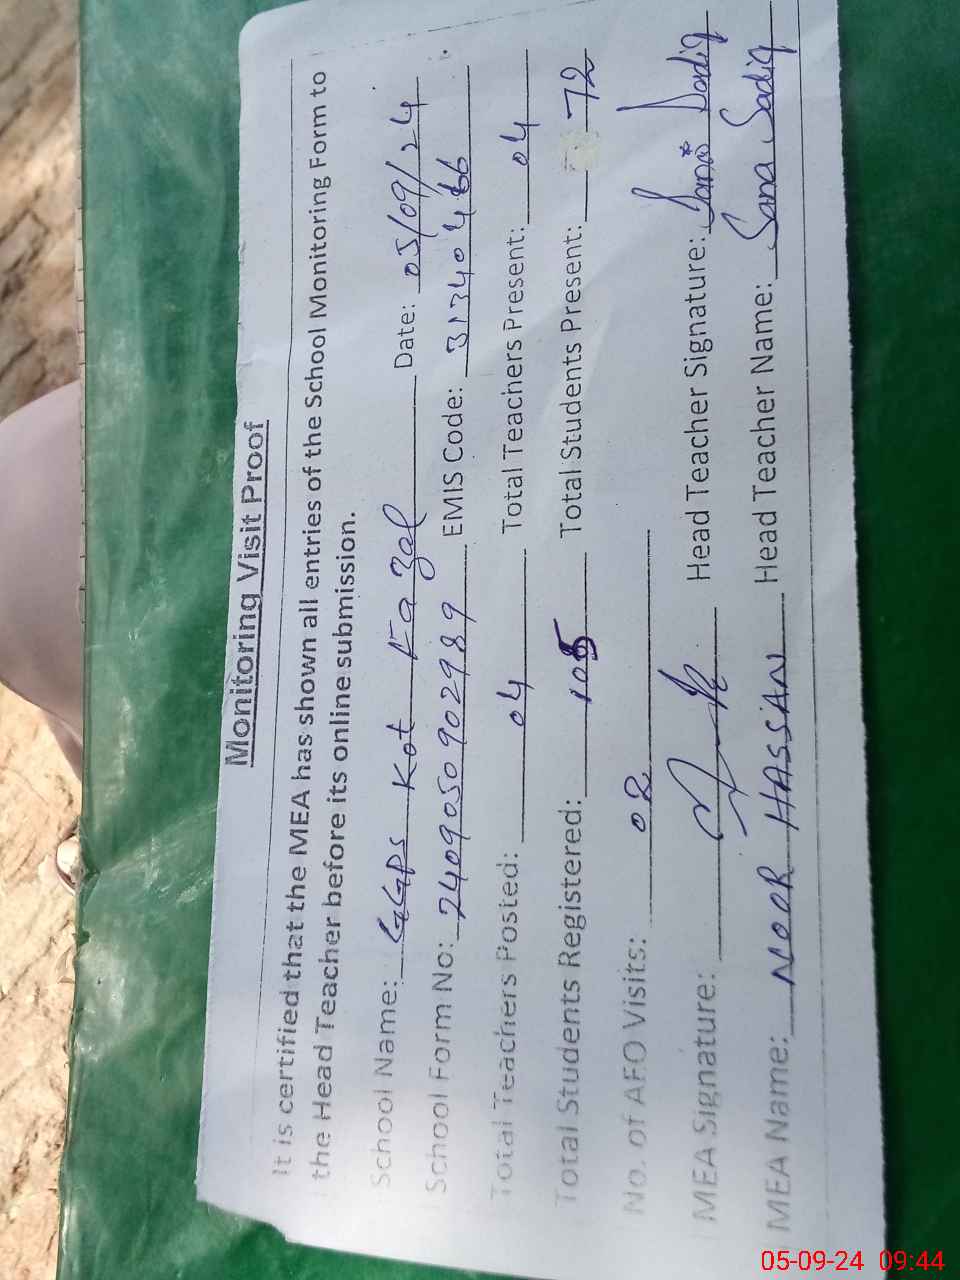 Monitoring Visit Proof
It is certified that the MEA has shown all entries of the School Monitoring Form to
the Head Teacher before its online submission.
School Name: GGPS Kot Fazal Date: 05/09/24
School Form No: 2409050902989 EMIS Code: 31340466
Total Teachers Posted: 04 Total Teachers Present: 04
Total Students Registered: 105 Total Students Present: 72
No. of AEO Visits: 02
MEA Signature: Head Teacher Signature: Sana Sadiq
MEA Name: NOOR HASSAN Head Teacher Name: Sana Sadiq
05-09-24 09:44